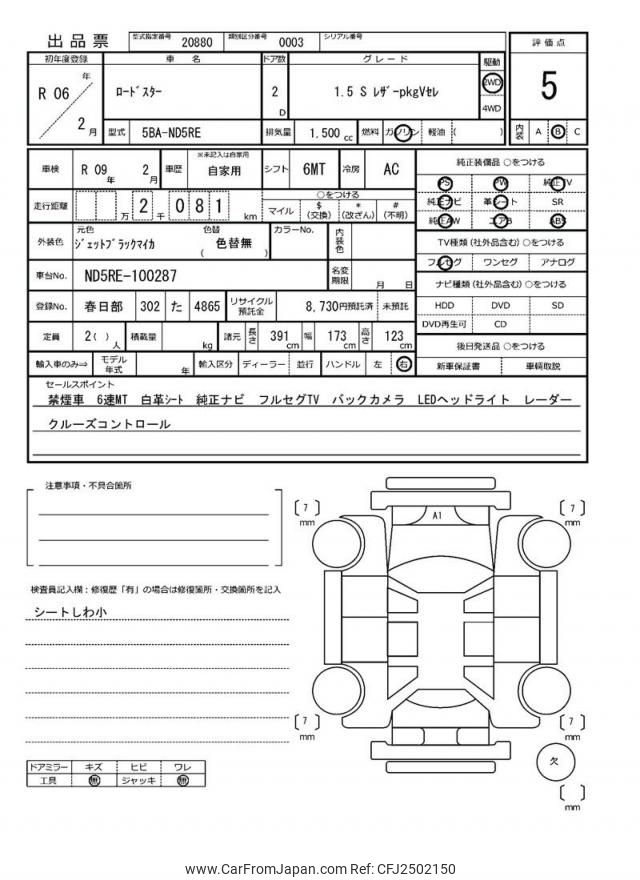 出品票 型式指定番号 20880 類別区分番号 0003 シリアル番号
初年度登録 車名 ドア数 グレード 駆動 評価点
R 06 年 2 月 ﾛｰﾄﾞｽﾀｰ 2 D 1.5 S ﾚｻﾞｰpkgVｾﾚ 2WD 4WD 5
型式 5BA-ND5RE 排気量 1,500 cc 燃料 ガソリン 軽油 ( ) 内装 A B C
車検 R 09 年 2 月 車歴 ※未記入は自家用 自家用 シフト 6MT 冷房 AC 純正装備品 ○をつける
PS PW 純正TV
走行距離 万 2 千 0 8 1 km ○をつける マイル $ (交換) * (改ざん) # (不明) 純正ナビ 革シート SR
純正AW エアB ABS
外装色 元色 ｼﾞｪｯﾄﾌﾞﾗｯｸﾏｲｶ 色替 ( 色替無 ) カラーNo. 内装色 TV種類 (社外品含む) ○をつける
フルセグ ワンセグ アナログ
車台No. ND5RE-100287 名変期限 月 日 ナビ種類 (社外品含む) ○をつける
登録No. 春日部 302 た 4865 リサイクル預託金 8,730円預託済 未預託 HDD DVD SD
DVD再生可 CD
定員 2( ) 人 積載量 kg 諸元 長さ 391 cm 幅 173 cm 高さ 123 cm 後日発送品 ○をつける
輸入車のみ⇒ モデル年式 年 輸入区分 ディーラー 並行 ハンドル 左 右 新車保証書 車輌取説
セールスポイント
禁煙車 6速MT 白革ｼｰﾄ 純正ナビ フルセグTV バックカメラ LEDヘッドライト レーダー
クルーズコントロール
注意事項・不具合箇所
検査員記入欄：修復歴「有」の場合は修復箇所・交換箇所を記入
シートしわ小
ドアミラー キズ ヒビ ワレ
工具 無 ジャッキ 無
7 mm
A1
7 mm
7 mm
7 mm
欠
mm
www.CarFromJapan.com Ref: CFJ2502150